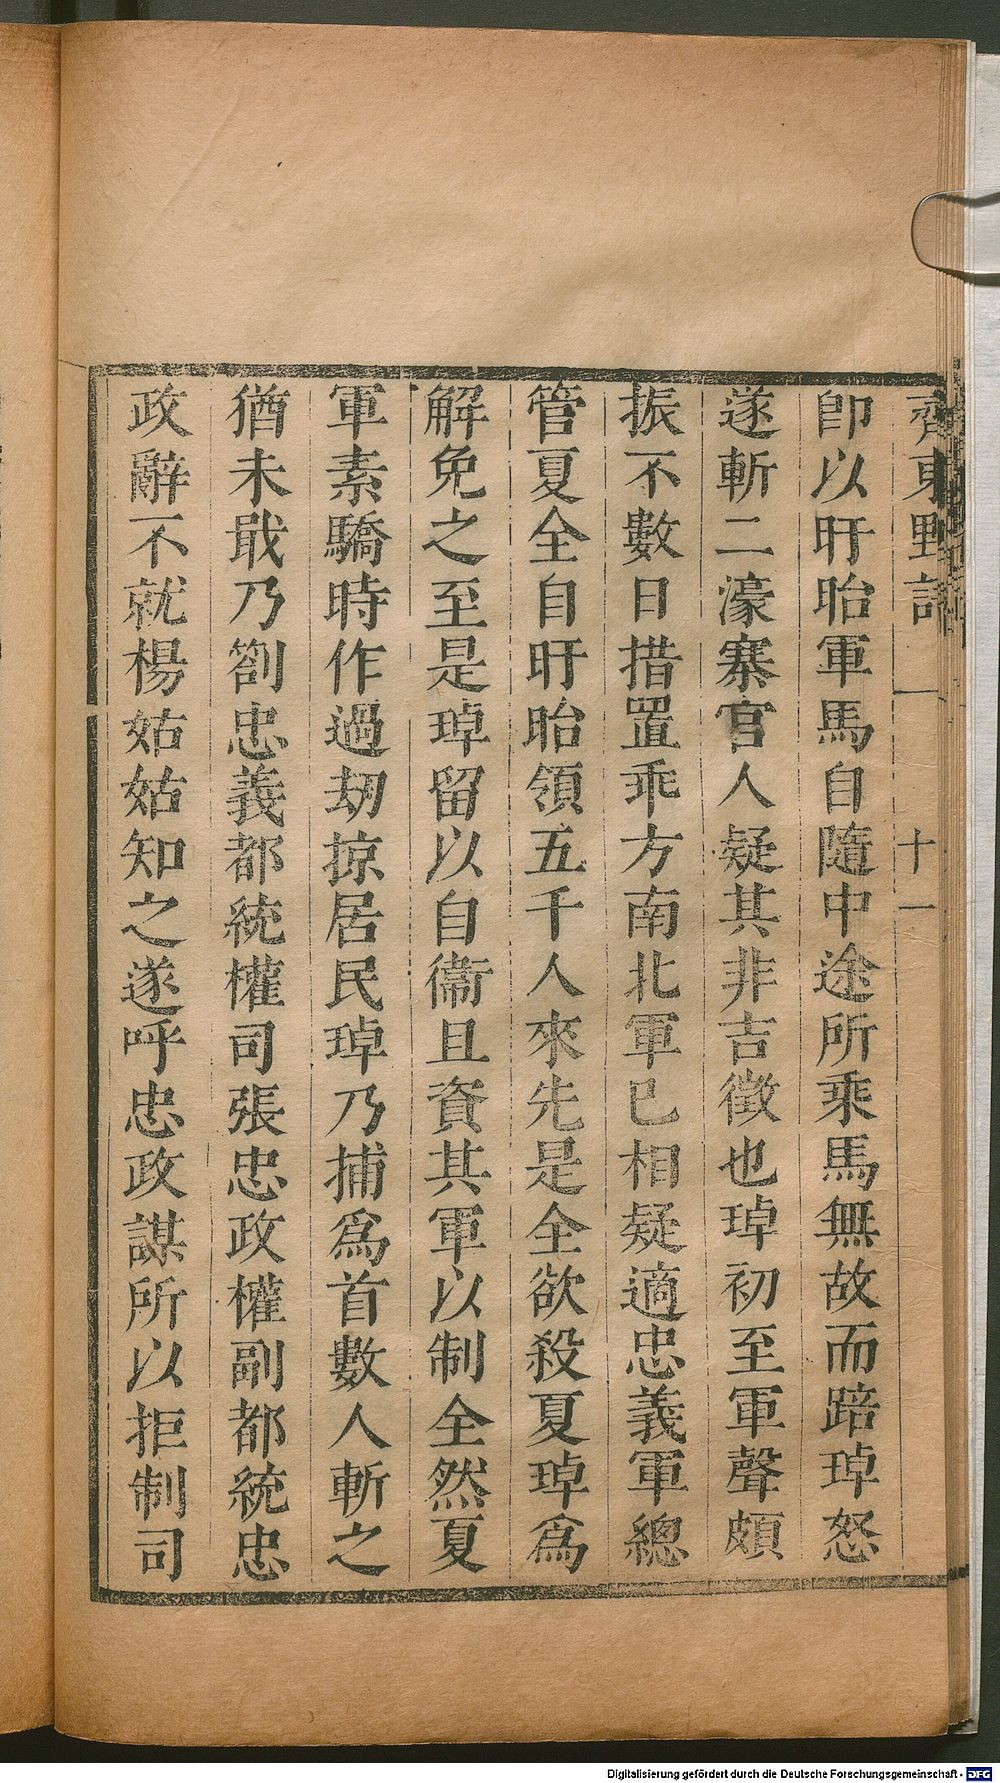 齊東野語
十一
卽以盱眙軍馬自隨中途所乘馬無故而踣琸怒
遂斬二濠寨官人疑其非吉徵也琸初至軍聲頗
振不數日措置乖方南北軍已相疑適忠義軍總
管夏全自盱眙領五千人來先是全欲殺夏琸爲
解免之至是琸留以自衞且資其軍以制全然夏
軍素驕時作過刼掠居民琸乃捕爲首數人斬之
猶未戢乃劄忠義都統權司張忠政權副都統忠
政辭不就楊姑姑知之遂呼忠政謀所以拒制司
Digitalisierung gefördert durch die Deutsche Forschungsgemeinschaft - DFG